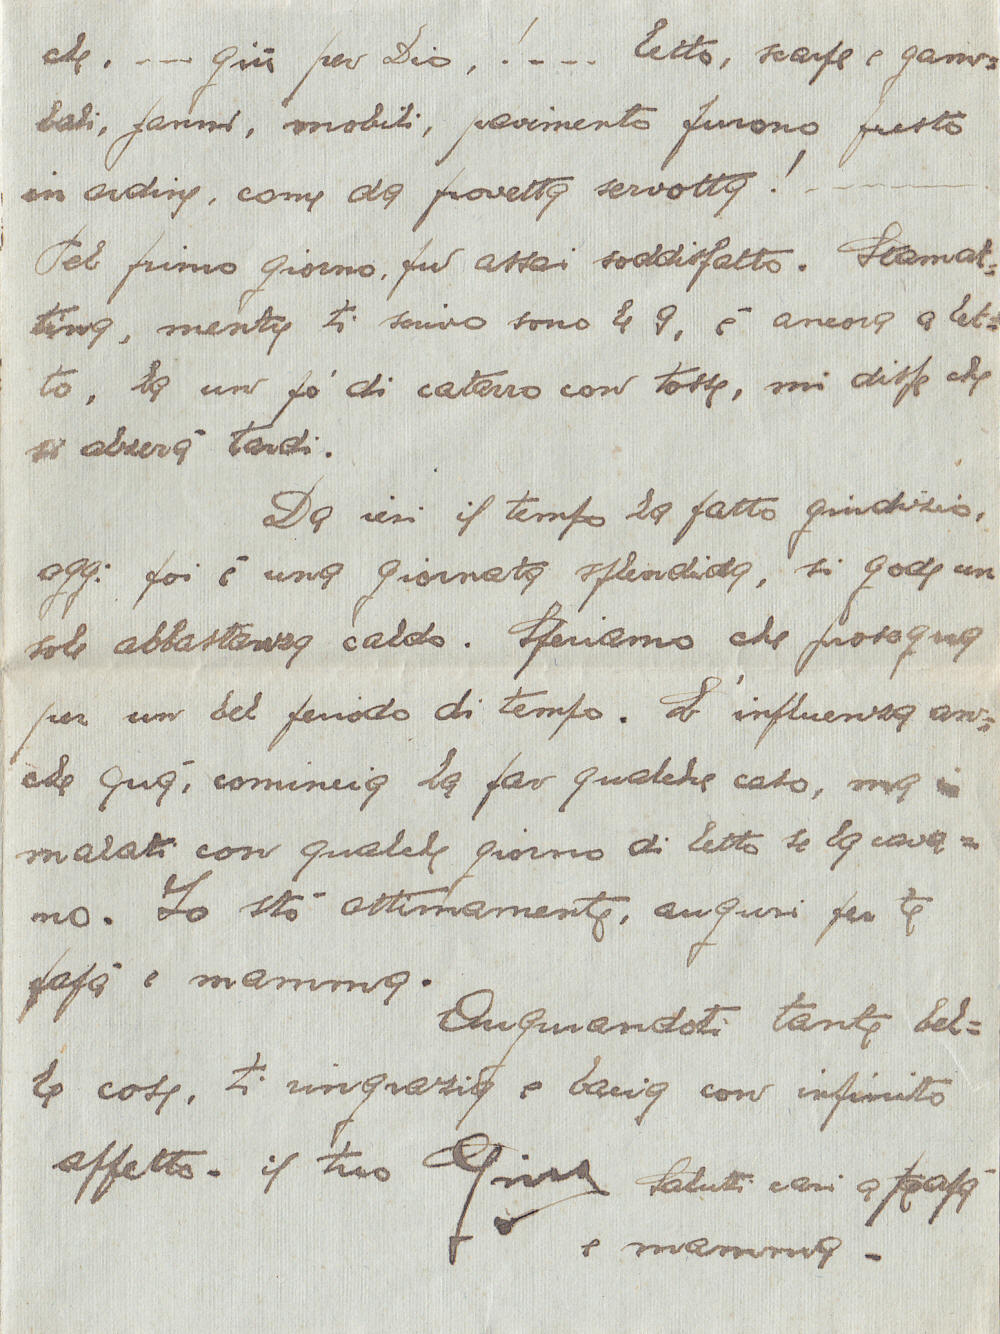 che, --- giù per Dio, !---- letto, scarpe e gam=
bali, panni, mobili, pavimento furono presto
in ordine, come da provetta servotta!
Pel primo giorno, fù assai soddisfatto. Stamat=
tina, mentre ti scrivo sono le 9, è ancora a let=
to, ha un pò di catarro con tosse, mi disse che
si alzerà tardi.
Da ieri il tempo ha fatto giudizio,
oggi poi è una giornata splendida, si gode un
sole abbastanza caldo. Speriamo che prosegua
per un bel periodo di tempo. L'influenza an=
che quà, comincia ha far qualche caso, ma i
malati con qualche giorno di letto se la cava=
no. Io stò ottimamente, auguri per te
papà e mamma.
Augurandoti tante bel=
le cose, ti ringrazia e bacia con infinito
affetto - il tuo Gino
Saluti cari a papà
e mamma -